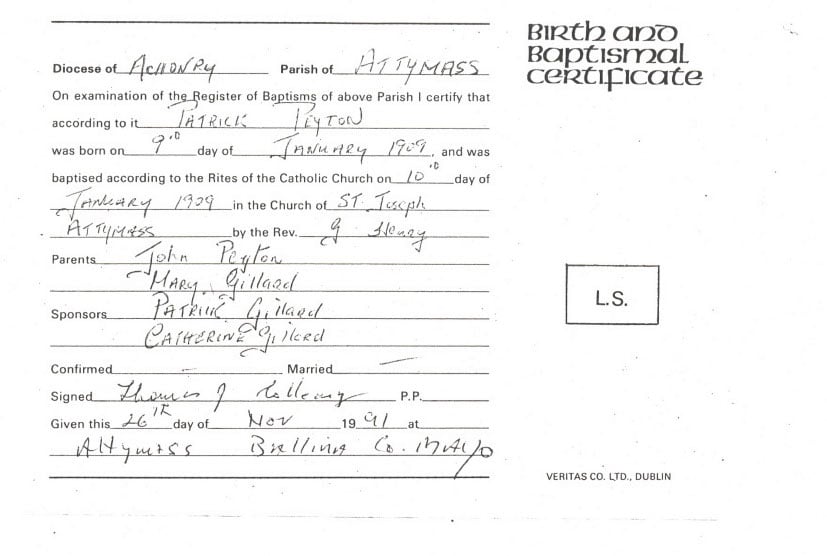 Birth and
Baptismal
Certificate
Diocese of ACHONRY Parish of ATTYMASS
On examination of the Register of Baptisms of above Parish I certify that
according to it PATRICK PEYTON
was born on 9 day of JANUARY 1909, and was
baptised according to the Rites of the Catholic Church on 10 day of
JANUARY 1909 in the Church of ST. Joseph
ATTYMASS by the Rev. G Henry
Parents John Peyton
MARY Gillard
Sponsors PATRICK Gillard
CATHERINE Gillard
Confirmed Married
Signed Thomas J Colleary P.P.
Given this 26TH day of Nov 1991 at
Attymass Ballina Co. MAYO
L.S.
VERITAS CO. LTD., DUBLIN